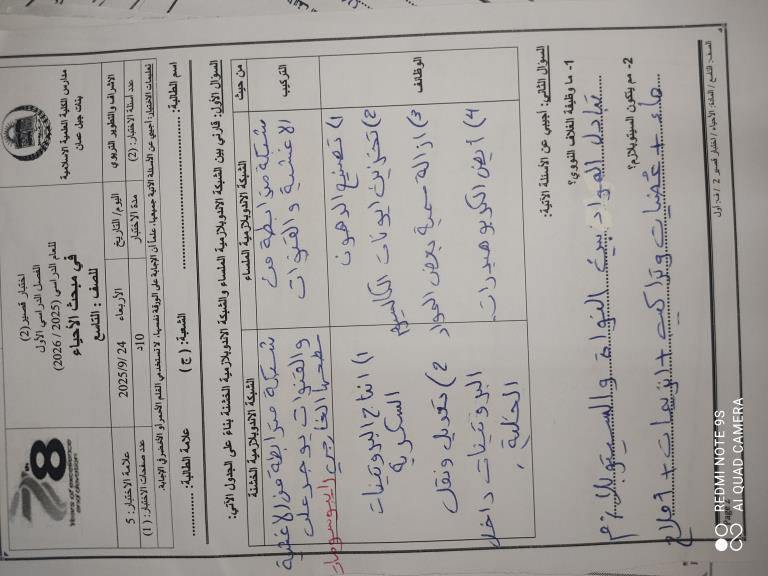 مدارس الكلية العلمية الاسلامية
بنت جبل عمان
اختبار قصير (2)
الفصل الدراسي الأول
للعام الدراسي (2025 / 2026)
في مبحث الأحياء
للصف : التاسع
الاشراف والتطوير التربوي
اليوم/ التاريخ
الأربعاء 2025/9/24
علامة الاختبار: 5
عدد أسئلة الاختبار: (2)
مدة الاختبار
10د
عدد صفحات الاختبار: (1)
تعليمات الاختبار: أجيبي عن الأسئلة الآتية جميعها، علما أن الإجابة على الورقة نفسها، لا تستخدمي القلم الأحمر أو الأخضر في الإجابة.
اسم الطالبة:
الشعبة: ( ج )
علامة الطالبة:
السؤال الأول: قارني بين الشبكة الاندوبلازمية الملساء والشبكة الاندوبلازمية الخشنة بناء على الجدول الآتي:
من حيث
الشبكة الاندوبلازمية الملساء
الشبكة الاندوبلازمية الخشنة
التركيب
شبكة مترابطة من
الاغشية والقنوات
شبكة مترابطة من الاغشية
والقنوات يوجد على
سطحها الخارجي رايبوسومات
الوظائف
1) تصنيع الدهون
2) تخزين ايونات الكالسيوم
3) ازالة سمية بعض المواد
4) أيض الكربوهيدرات.
1) انتاج البروتينات
السكرية
2) تعديل ونقل
البروتينات داخل
الخلية.
السؤال الثاني: أجيبي عن الأسئلة الآتية:
1- ما وظيفة الغلاف النووي؟
تبادل المواد بين النواة والسيتوبلازم
2- مم يتكون السيتوبلازم؟
ماء + عضيات وتراكيب + انزيمات + املاح
الصف: التاسع / المادة: الأحياء / اختبار قصير 2 / ف: أول
78
Years of excellence
and devotion
REDMI NOTE 9S
AI QUAD CAMERA